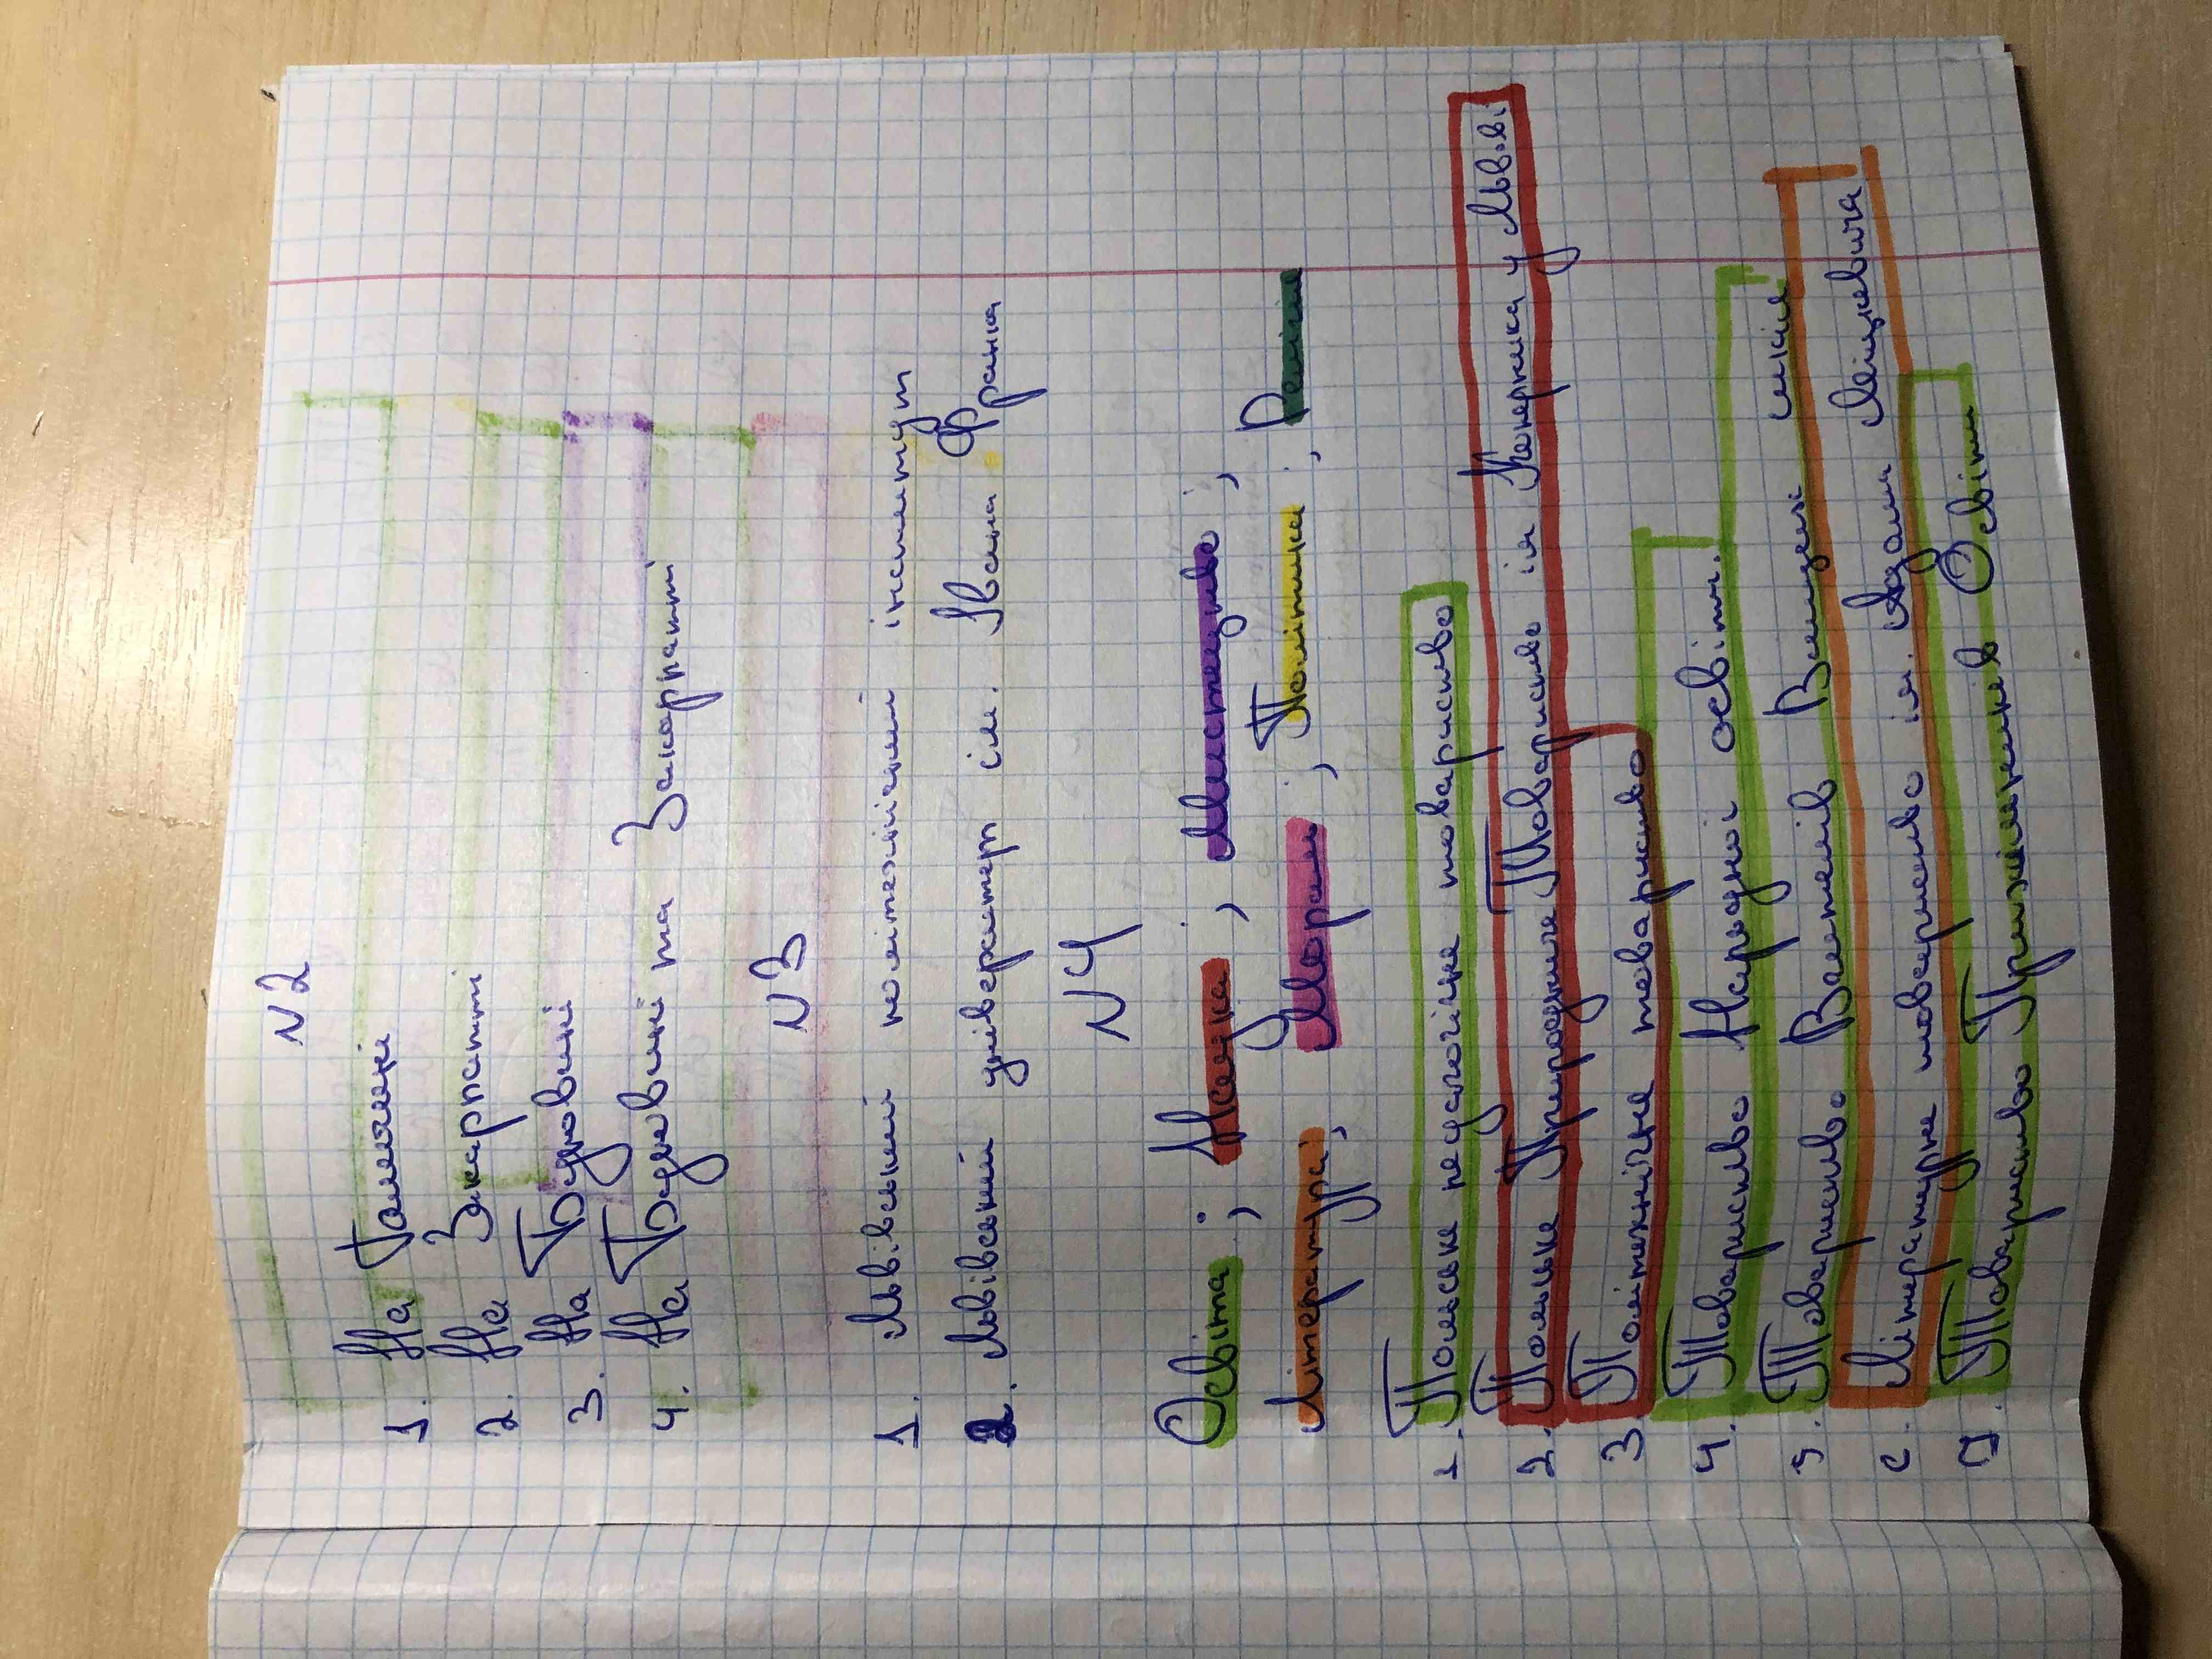 N2
1. На Галичині
2. На Закарпатті
3. На Буковині
4. На Буковині та Закарпатті
N3
1. Львівський політехнічний інститут
2. Львівський університет ім. Івана Франка
N4
Освіта; Наука; Мистецтво;
Література; Мораль; Політика; Релігія
1. Польське педагогічне товариство
2. Польське Природниче Товариство ім Коперника у Львові
3. Політехнічне товариство
4. Товариство Народної освіти.
5. Товариство Вчителів Вищих шкіл
6. Літературне товариство ім. Адама Міцкевича
7. Товариство Прихильників Освіти